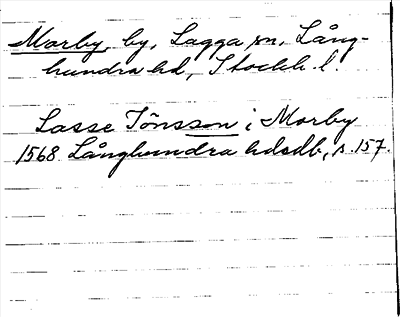 Morby, by, Lagga sn, Lång-
hundra hd, Stockh. l.
Lasse Jönsson i Morby
1568 Långhundra hdsdb, s. 157.